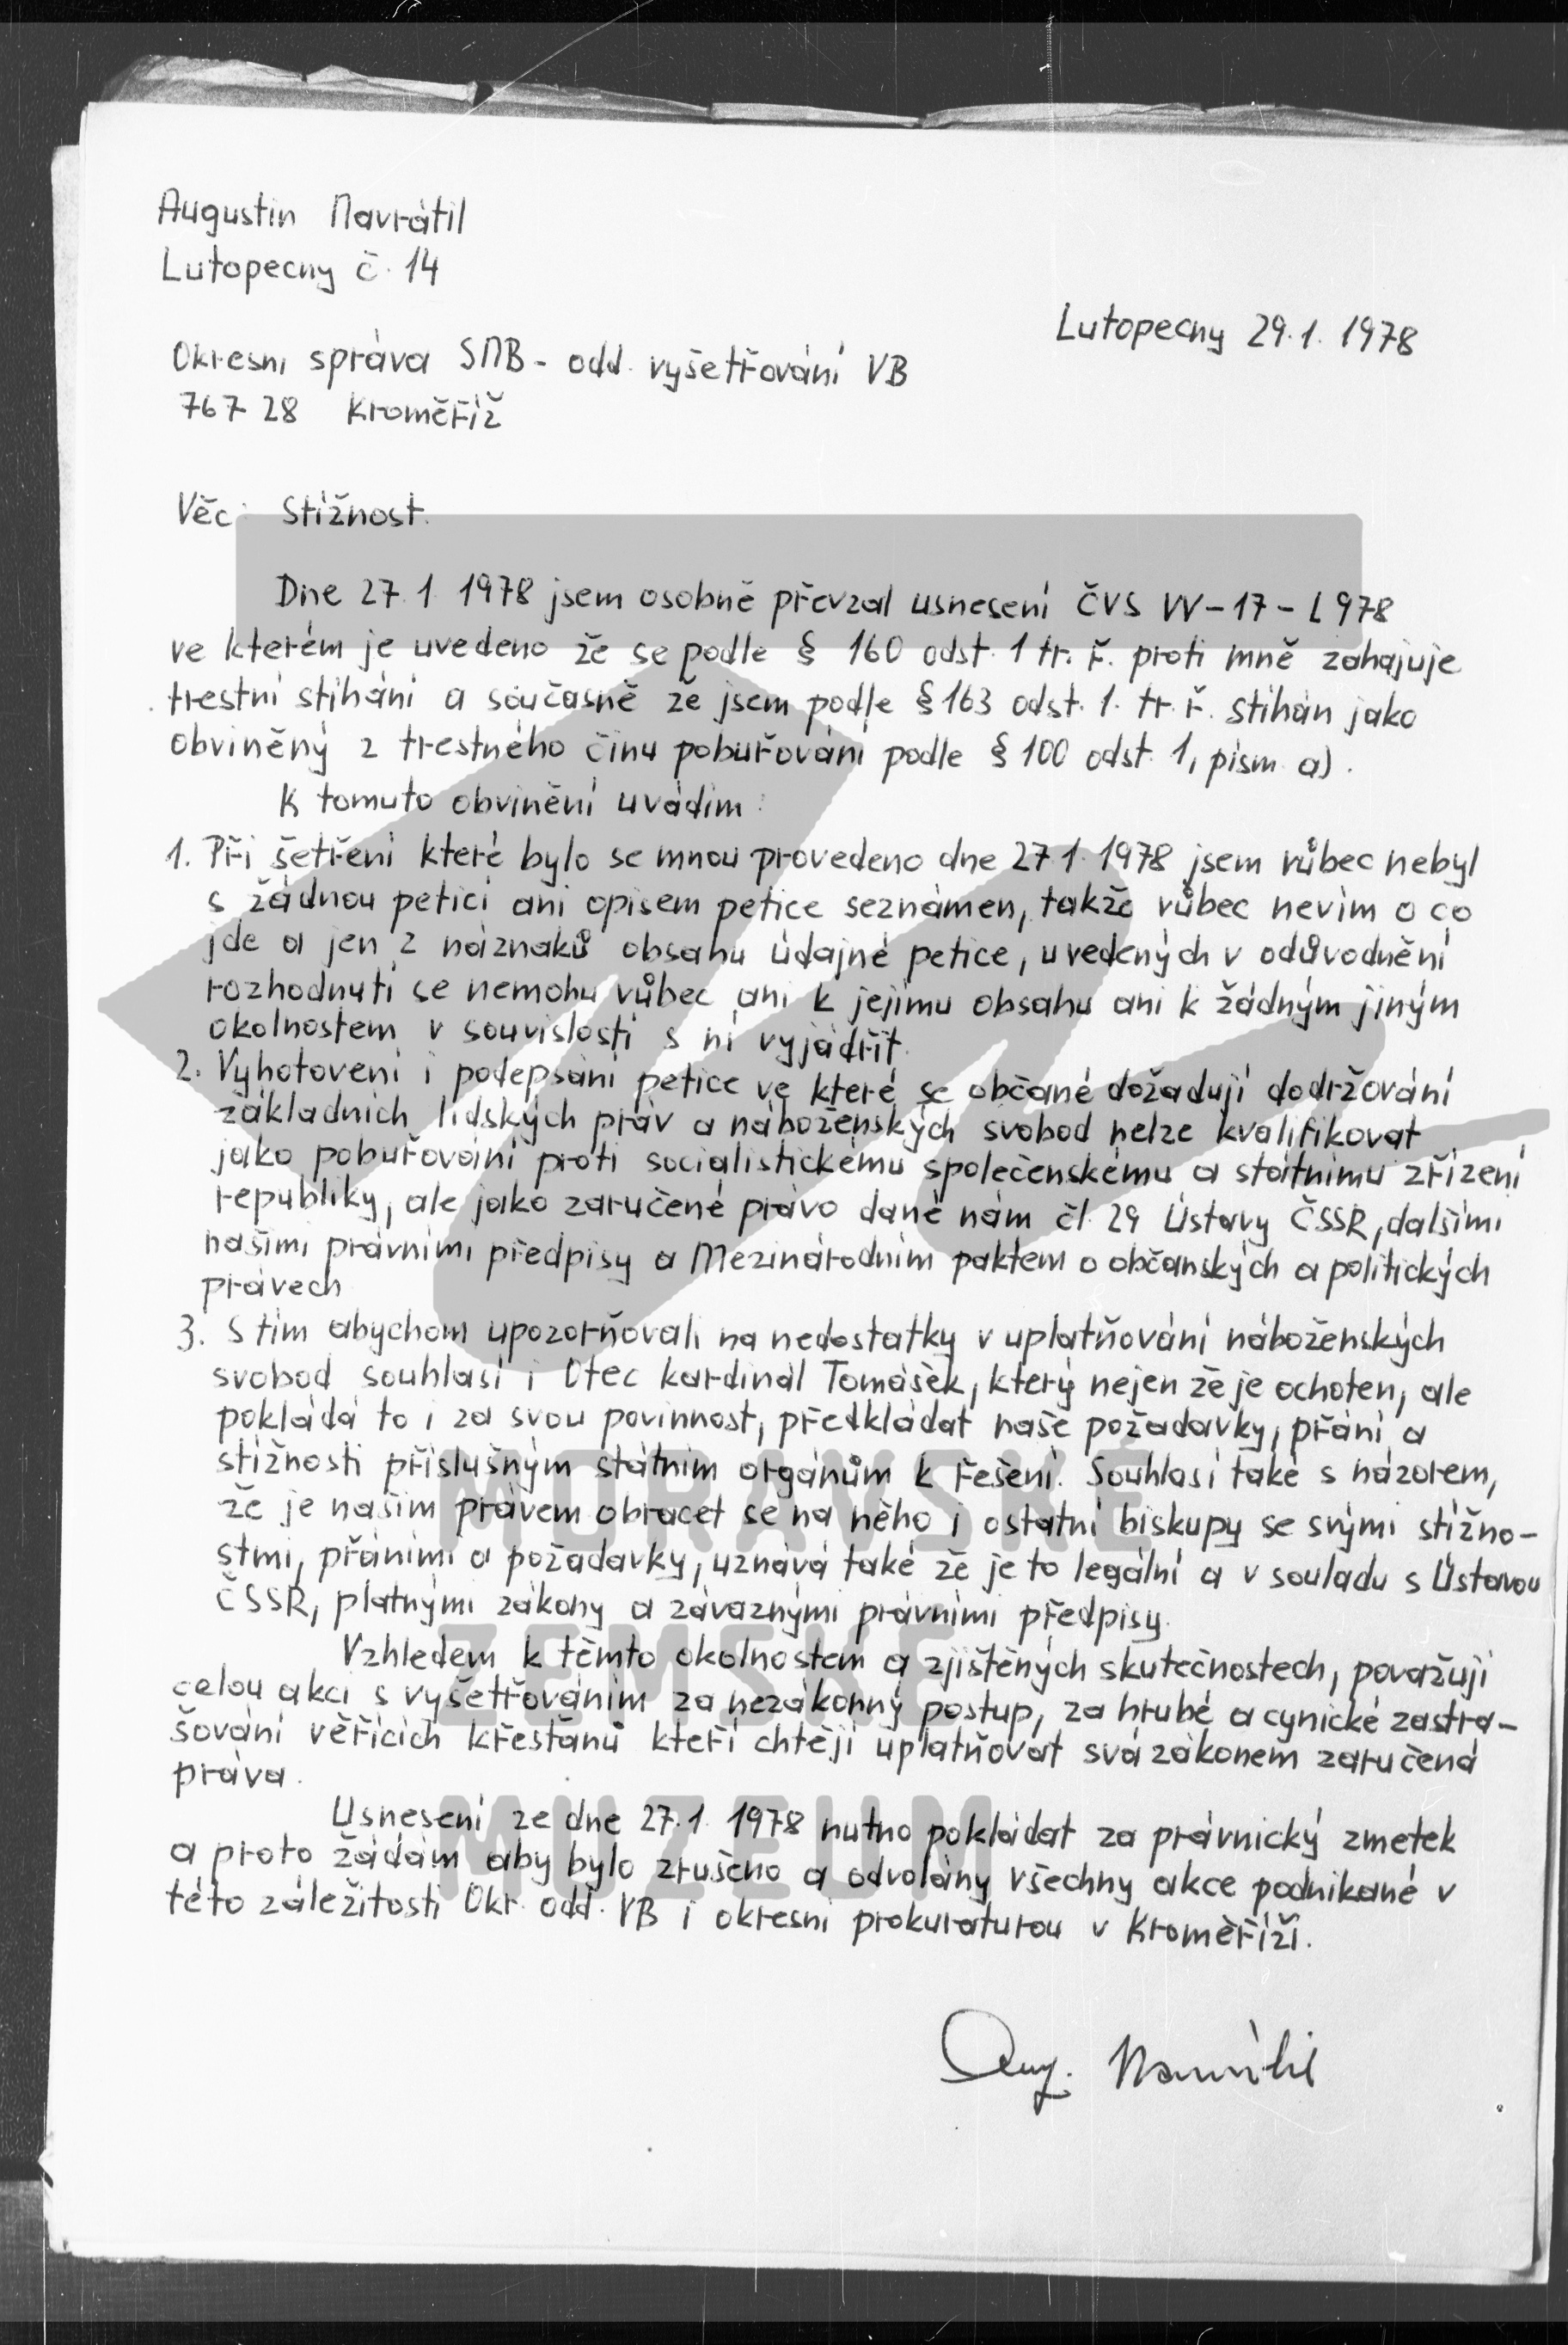 Augustin Navrátil
Lutopecny č. 14
Lutopecny 29.1. 1978
Okresní správa SNB - odd. vyšetřování VB
767 28 Kroměříž
Věc: Stížnost.
Dne 27.1. 1978 jsem osobně převzal usnesení ČVS VV-17-1978
ve kterém je uvedeno že se podle § 160 odst. 1 tr. ř. proti mně zahajuje
trestní stíhání a současně že jsem podle § 163 odst. 1. tr. ř. stíhán jako
obviněný z trestného činu pobuřování podle § 100 odst. 1, písm a).
K tomuto obvinění uvádím:
1. Při šetření které bylo se mnou provedeno dne 27.1. 1978 jsem vůbec nebyl
s žádnou peticí ani opisem petice seznámen, takže vůbec nevím o co
jde a jen z náznaků obsahu údajné petice, uvedených v odůvodnění
rozhodnutí se nemohu vůbec ani k jejímu obsahu ani k žádným jiným
okolnostem v souvislosti s ní vyjádřit.
2. Vyhotovení i podepsání petice ve které se občané dožadují dodržování
základních lidských práv a náboženských svobod nelze kvalifikovat
jako pobuřování proti socialistickému společenskému a státnímu zřízení
republiky, ale jako zaručené právo dané nám čl. 29 Ústavy ČSSR, dalšími
našimi právními předpisy a Mezinárodním paktem o občanských a politických
právech
3. S tím abychom upozorňovali na nedostatky v uplatňování náboženských
svobod souhlasí i Otec kardinál Tomášek, který nejen že je ochoten, ale
pokládá to i za svou povinnost, předkládat naše požadavky, přání a
stížnosti příslušným státním orgánům k řešení. Souhlasí také s názorem,
že je naším právem obracet se na něho i ostatní biskupy se svými stížno-
stmi, přáními a požadavky, uznává také že je to legální a v souladu s Ústavou
ČSSR, platnými zákony a závaznými právními předpisy.
Vzhledem k těmto okolnostem a zjištěných skutečnostech, považuji
celou akci s vyšetřováním za nezákonný postup, za hrubé a cynické zastra-
šování věřících křesťanů kteří chtějí uplatňovat svá zákonem zaručená
práva.
Usnesení ze dne 27.1. 1978 nutno pokládat za právnický zmetek
a proto žádám aby bylo zrušeno a odvolány všechny akce podnikané v
této záležitosti Okr. odd. VB i okresní prokuraturou v Kroměříži.
Aug. Navrátil
MORAVSKÉ
ZEMSKÉ
MUZEUM